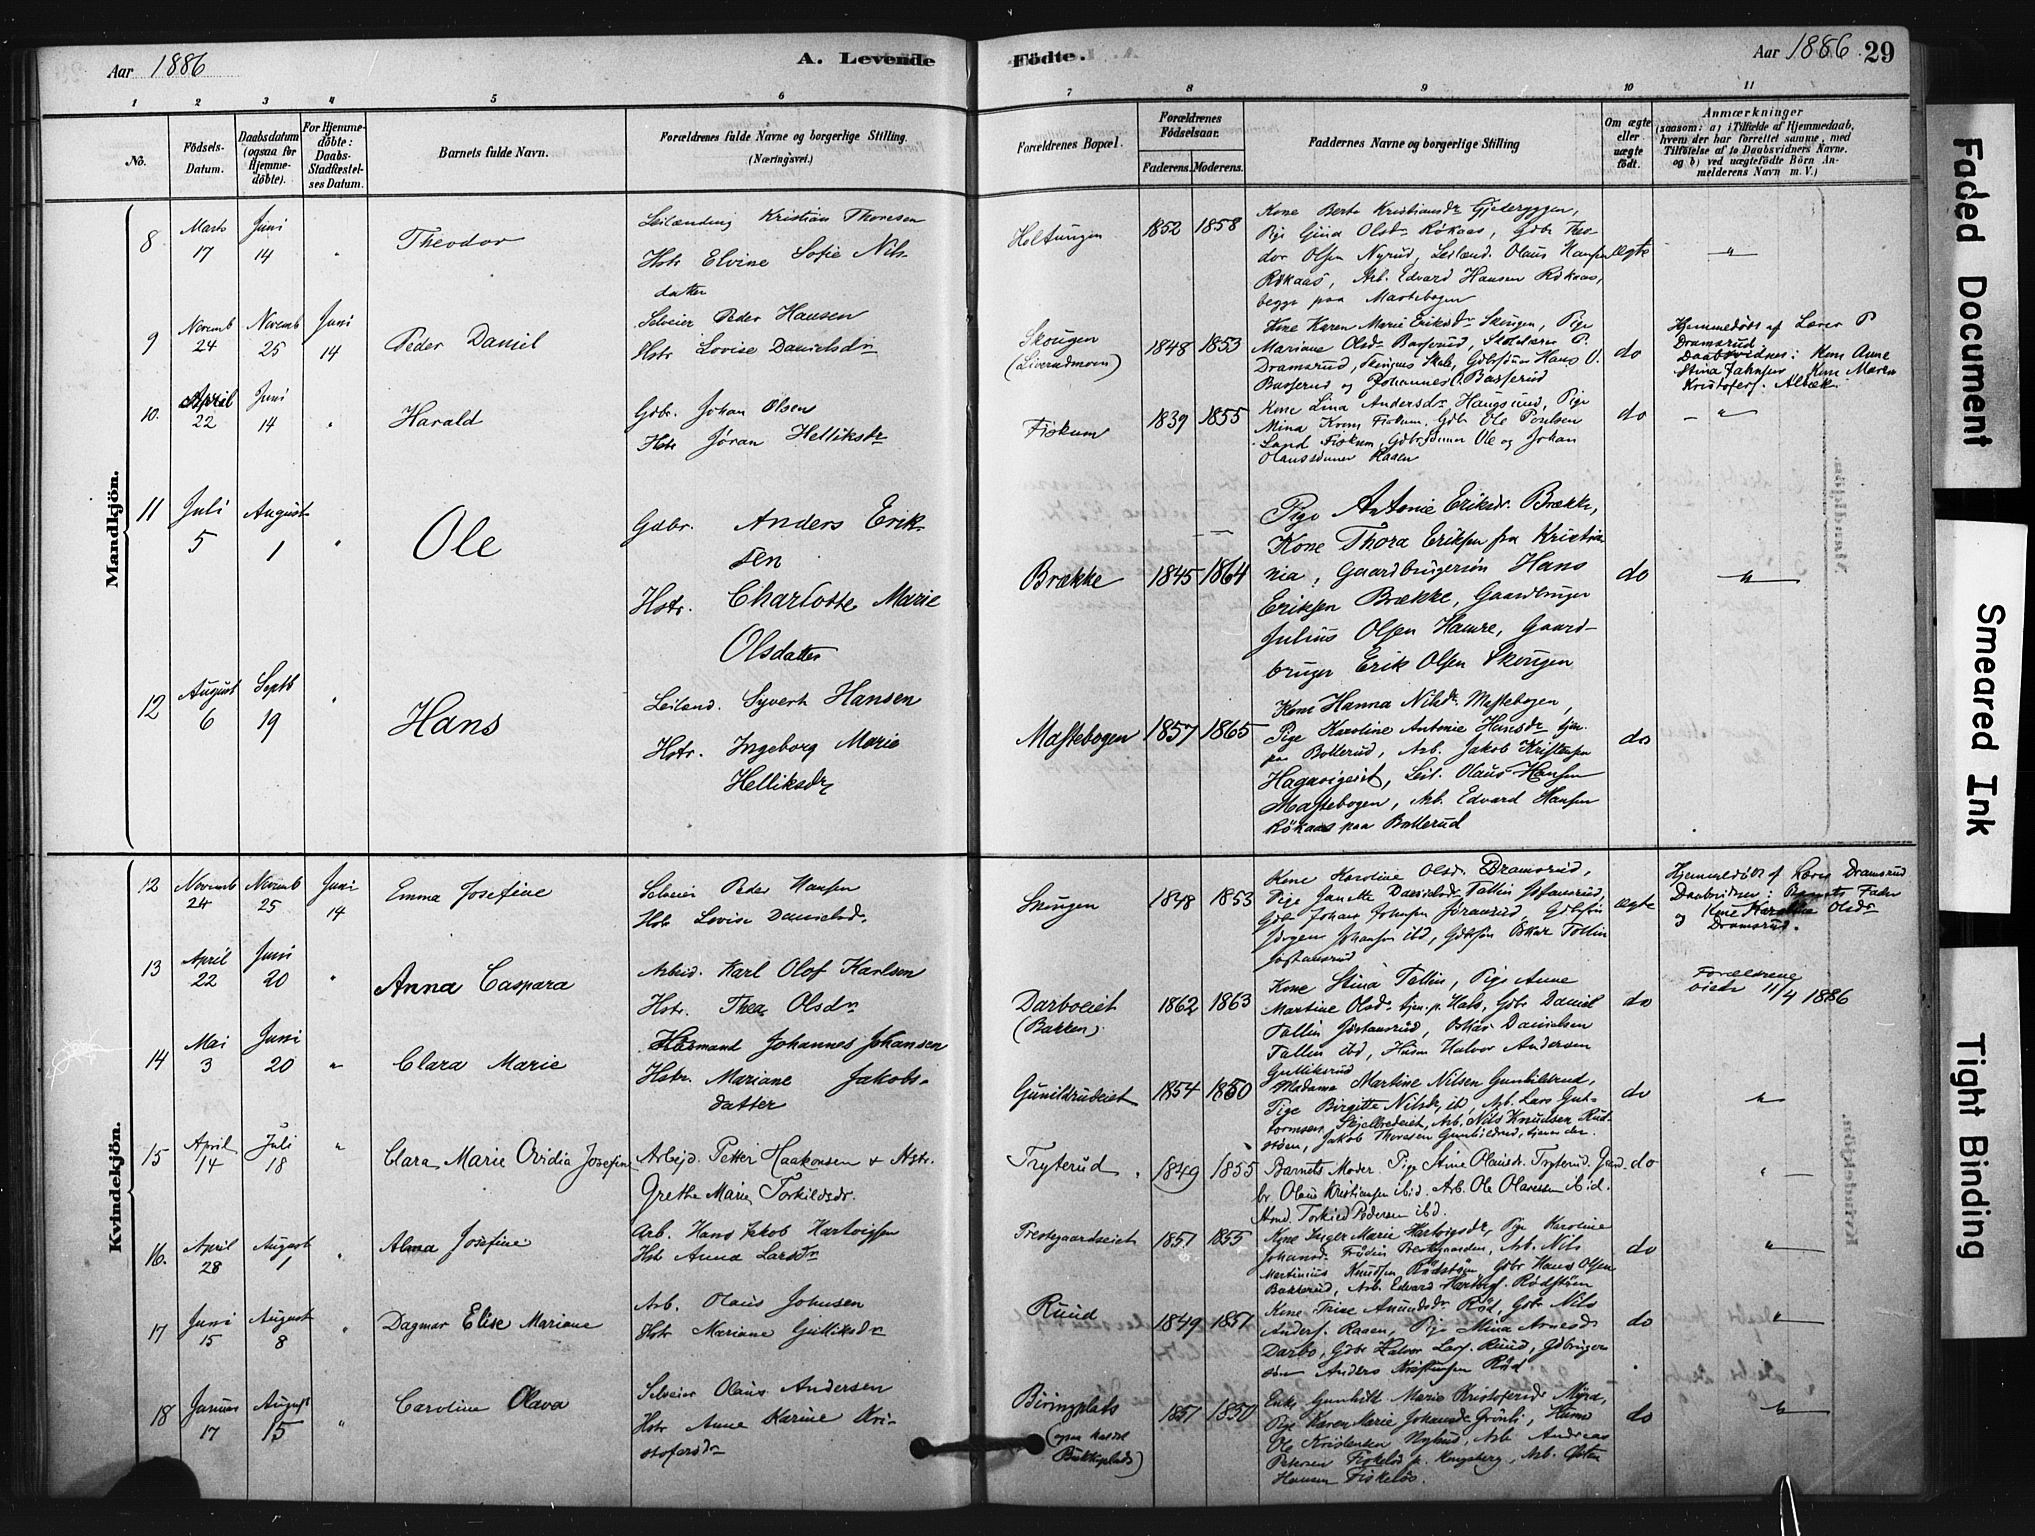 Aar 1886
A. Levende
Födte.
Aar 1886. 29
1 2 3 4 5 6 7 8 9 10 11
No.
Födsels-
Datum.
Daabsdatum
(ogsaa for
Hjemme-
döbte).
For Hjemme-
döbte:
Daabs-
Stadfæstel-
ses Datum.
Barnets fulde Navn.
Forældrenes fulde Navne og borgerlige Stilling.
(Næringsvei.)
Forældrenes Bopæl.
Forældrenes
Födselsaar.
Faderens. Moderens.
Faddernes Navne og borgerlige Stilling
Om ægte
eller
uægte
födt.
Anmærkninger
(saasom: a) i Tilfælde af Hjemmedaab,
hvem der har forrettet samme, med
Tilföielse af to Daabsvidners Navne.
og b) ved uægtefödte Börn An-
melderens Navn m. V.)
Mandkjön.
8
Marts
17
Juni
14
"
Theodor
Leilænding Kristian Thoresen
Hstr Elvine Sofie Nils-
datter
Holtungen
1852 1858
Kone Berte Kristiansdr
Pige Gina Olsdr Rökaas, Gdbr Theo-
dor Olsen Nyrud, Leilænd. Olaus Hansen
Rökaas, Arb. Edvard Hansen Rökaas,
begge paa Mastebogen
Ægte
"
9
Novemb
24
Novemb
25
Juni
14
Peder Daniel
Selveier Peder Hansen
Hstr Lovise Danielsdr
Skougen
(Liverudmoen)
1848 1853
Kone Karen Marie Eriksdr Skougen, Pige
Mariane Olsdr Basserud, P.
Dramsrud, Skougens Skole, Gdbrsönner Hans O.
Basserud og Johannes O. Basserud
do
Hjemmedöbt af Lærer P
Dramsrud.
Daabsvidner: Kone Anne
Stina Kone Maren
Kristofers. Albæk.
10.
April
22
Juni
14
"
Harald
Gdbr. Johan Olsen
Hstr Jöran Helliksdr
Fiskum
1839 1855
Kone Lina Andersdr Haugsrud, Pige
Mina Fiskum, Gdbr Ole Poulsen
Land Fiskum, Gdbrsönner Ole og Johan
Olaussönner Raaen
do
"
11
Juli
5
August
1
"
Ole
Gdbr. Anders Erik-
sen
Hstr. Charlotte Marie
Olsdatter
Brække
1845 1864
Pige Antonie Eriksdr. Brække,
Kone Thora Eriksen fra Kristia-
nia, Gaardbrugersön Hans
Eriksen Brække, Gaardbruger
Julius Olsen Hamre, Gaard-
bruger Erik Olsen Skougen
do
"
12
August
6
Septb
19
"
Hans
Leilænd. Syvert Hansen
Hstr. Ingeborg Marie
Helliksdr
Mastebogen
1857 1865
Kone Hanna Nilsdr Mastebogen,
Pige Karoline Antonie Hansdr tjen.
paa Bollerud, Arb. Jakob Kristensen
Hagaseigeiet, Leil. Olaus Hansen
Mastebogen, Arb. Edvard Hansen
Rökaas paa Bollerud
do
Kvindekjön.
12
Novemb
24
Novemb
25
Juni
14
Emma Josefine
Selveier Peder Hansen
Hstr Lovise Danielsdr.
Skougen
1848 1853
Kone Karoline Olsdr Dramsrud,
Pige Janette Danielsdr Tollin Jostansrud,
Gdbr Johan Johnsen Göransrud, Gdbrsön
Jörgen Johansen ibd, Gdbrsön Oskar Tollin
Jostansrud
ægte
Hjemmedöbt af Lærer Dramsrud
Daabsvidner: Barnets Fader
og Kone Karoline Olsdr
Dramsrud.
13
April
22
Juni
20
"
Anna Caspara
Arbeid. Karl Olof Karlsen
Hstr. Thea Olsdr
Darboeiet
(Bakken)
1862 1863
Kone Stina Tollin, Pige Anne
Martine Olsdr tjen. p. Hals, Gdbr Daniel
Tollin Jostansrud, Oskar Danielsen
Tollin ibd, Husm Halvor Andersen
Gulliksrud
do
Forældrene
viede 11/4 1886
14
Mai
3
Juni
20
"
Clara Marie
Husmand Johannes Johansen
Hstr. Mariane Jakobs-
datter
Gunildrudeiet
1854 1850
Madame Martine Nilsen Gunhildrud,
Pige Birgitte Nilsdr, ibd, Arb. Lars Gut-
tormsen Skjelbredeiet, Arb. Nils Knudsen Rud-
stöen, Jakob Thoresen Gunhildrud, tjener der.
do
"
15
April
14
Juli
18
"
Clara Marie Ovidia Josefine
Arbejd. Petter Haakonsen & Hstr.
Grethe Marie Torkildsdr.
Tryterud
1849 1855
Barnets Moder. Pige Stine Olausdr. Tryterud. Gaard-
br. Olaus Kristiansen ibid. Arb. Ole Olavessen ibid.
Husmd. Torkild Pedersen ibd.
do
"
16.
April
28
August
1
"
Alma Josefine
Arb. Hans Jakob Hartvigsen
Hstr Anna Larsdr
Prestegaardseiet
1851 1855
Kone Inger Marie Hartvigsdr, Pige Karoline
Johansdr Frödin Prestgaarden, Arb. Nils
Martinius Knudsen Rödstöen Gdbr Hans Olsen
Bakkerud, Arb. Edvard Hartvigs. Rödstöen
do
"
17
Juni
15
August
8
"
Dagmar Elise Mariane
Arb. Olaus Johnsen
Hstr Mariane Gulliksdr
Ruud
1849 1851
Kone Trine Amundsdr Röd, Gdbr Nils
Anders. Raaen, Pige Mina Arnesdr
Darbo, Gdbr Halvor Lars. Ruud, Gdbruger-
sön Anders Kristiansen Röd
do
"
18
Januar
17
August
15
"
Caroline Olava
Selveier Olaus Andersen
Hstr Anne Karine Kri-
stofersdr
Böringplats
(ogsaa kaldet
Bukkeplads)
1851 1850
Enke Gunhild Marie Kristofersdr Myra,
Pige Karen Marie Johansdr Grönli, Husmd
Ole Kristensen Nyhus, Arb. Andreas
Petersen Fiskelös p. Kongsberg, Arb. Östen
Hansen Fiskelös.
do
"
Faded Document
Smeared Ink
Tight Binding